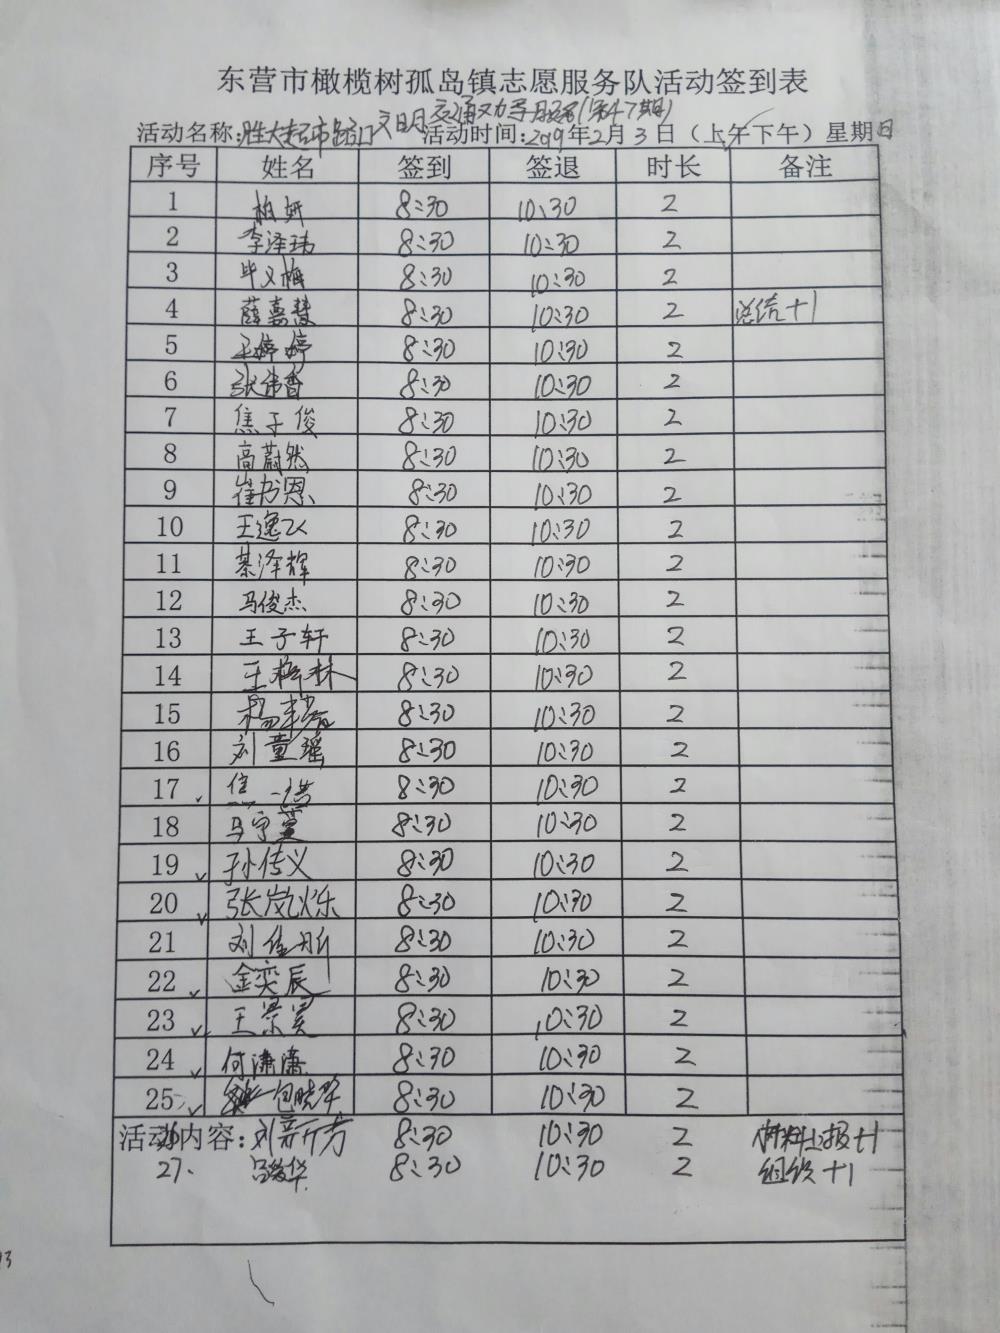 东营市橄榄树孤岛镇志愿服务队活动签到表
文明交通劝导服务(第47期)
活动名称:胜大超市路口 活动时间:2019年2月3日（上午下午）星期日
序号 姓名 签到 签退 时长 备注
1 柏妍 8:30 10:30 2
2 李泽玮 8:30 10:30 2
3 毕义梅 8:30 10:30 2
4 薛嘉慧 8:30 10:30 2 总结+1
5 王婷婷 8:30 10:30 2
6 张伟香 8:30 10:30 2
7 焦子俊 8:30 10:30 2
8 高蔚然 8:30 10:30 2
9 崔书恩 8:30 10:30 2
10 王逸飞 8:30 10:30 2
11 綦泽辉 8:30 10:30 2
12 马俊杰 8:30 10:30 2
13 王子轩 8:30 10:30 2
14 王 林 8:30 10:30 2
15 杨 8:30 10:30 2
16 刘童瑶 8:30 10:30 2
17 焦一 8:30 10:30 2
18 马宇萱 8:30 10:30 2
19 孙传义 8:30 10:30 2
20 张岚 乐 8:30 10:30 2
21 刘佳昕 8:30 10:30 2
22 金奕辰 8:30 10:30 2
23 王景昊 8:30 10:30 2
24 何潇潇 8:30 10:30 2
25 包晓华 8:30 10:30 2
活动内容: 26 刘新芳 8:30 10:30 2 材料上报+1
27、 吕 华 8:30 10:30 2 组织+1